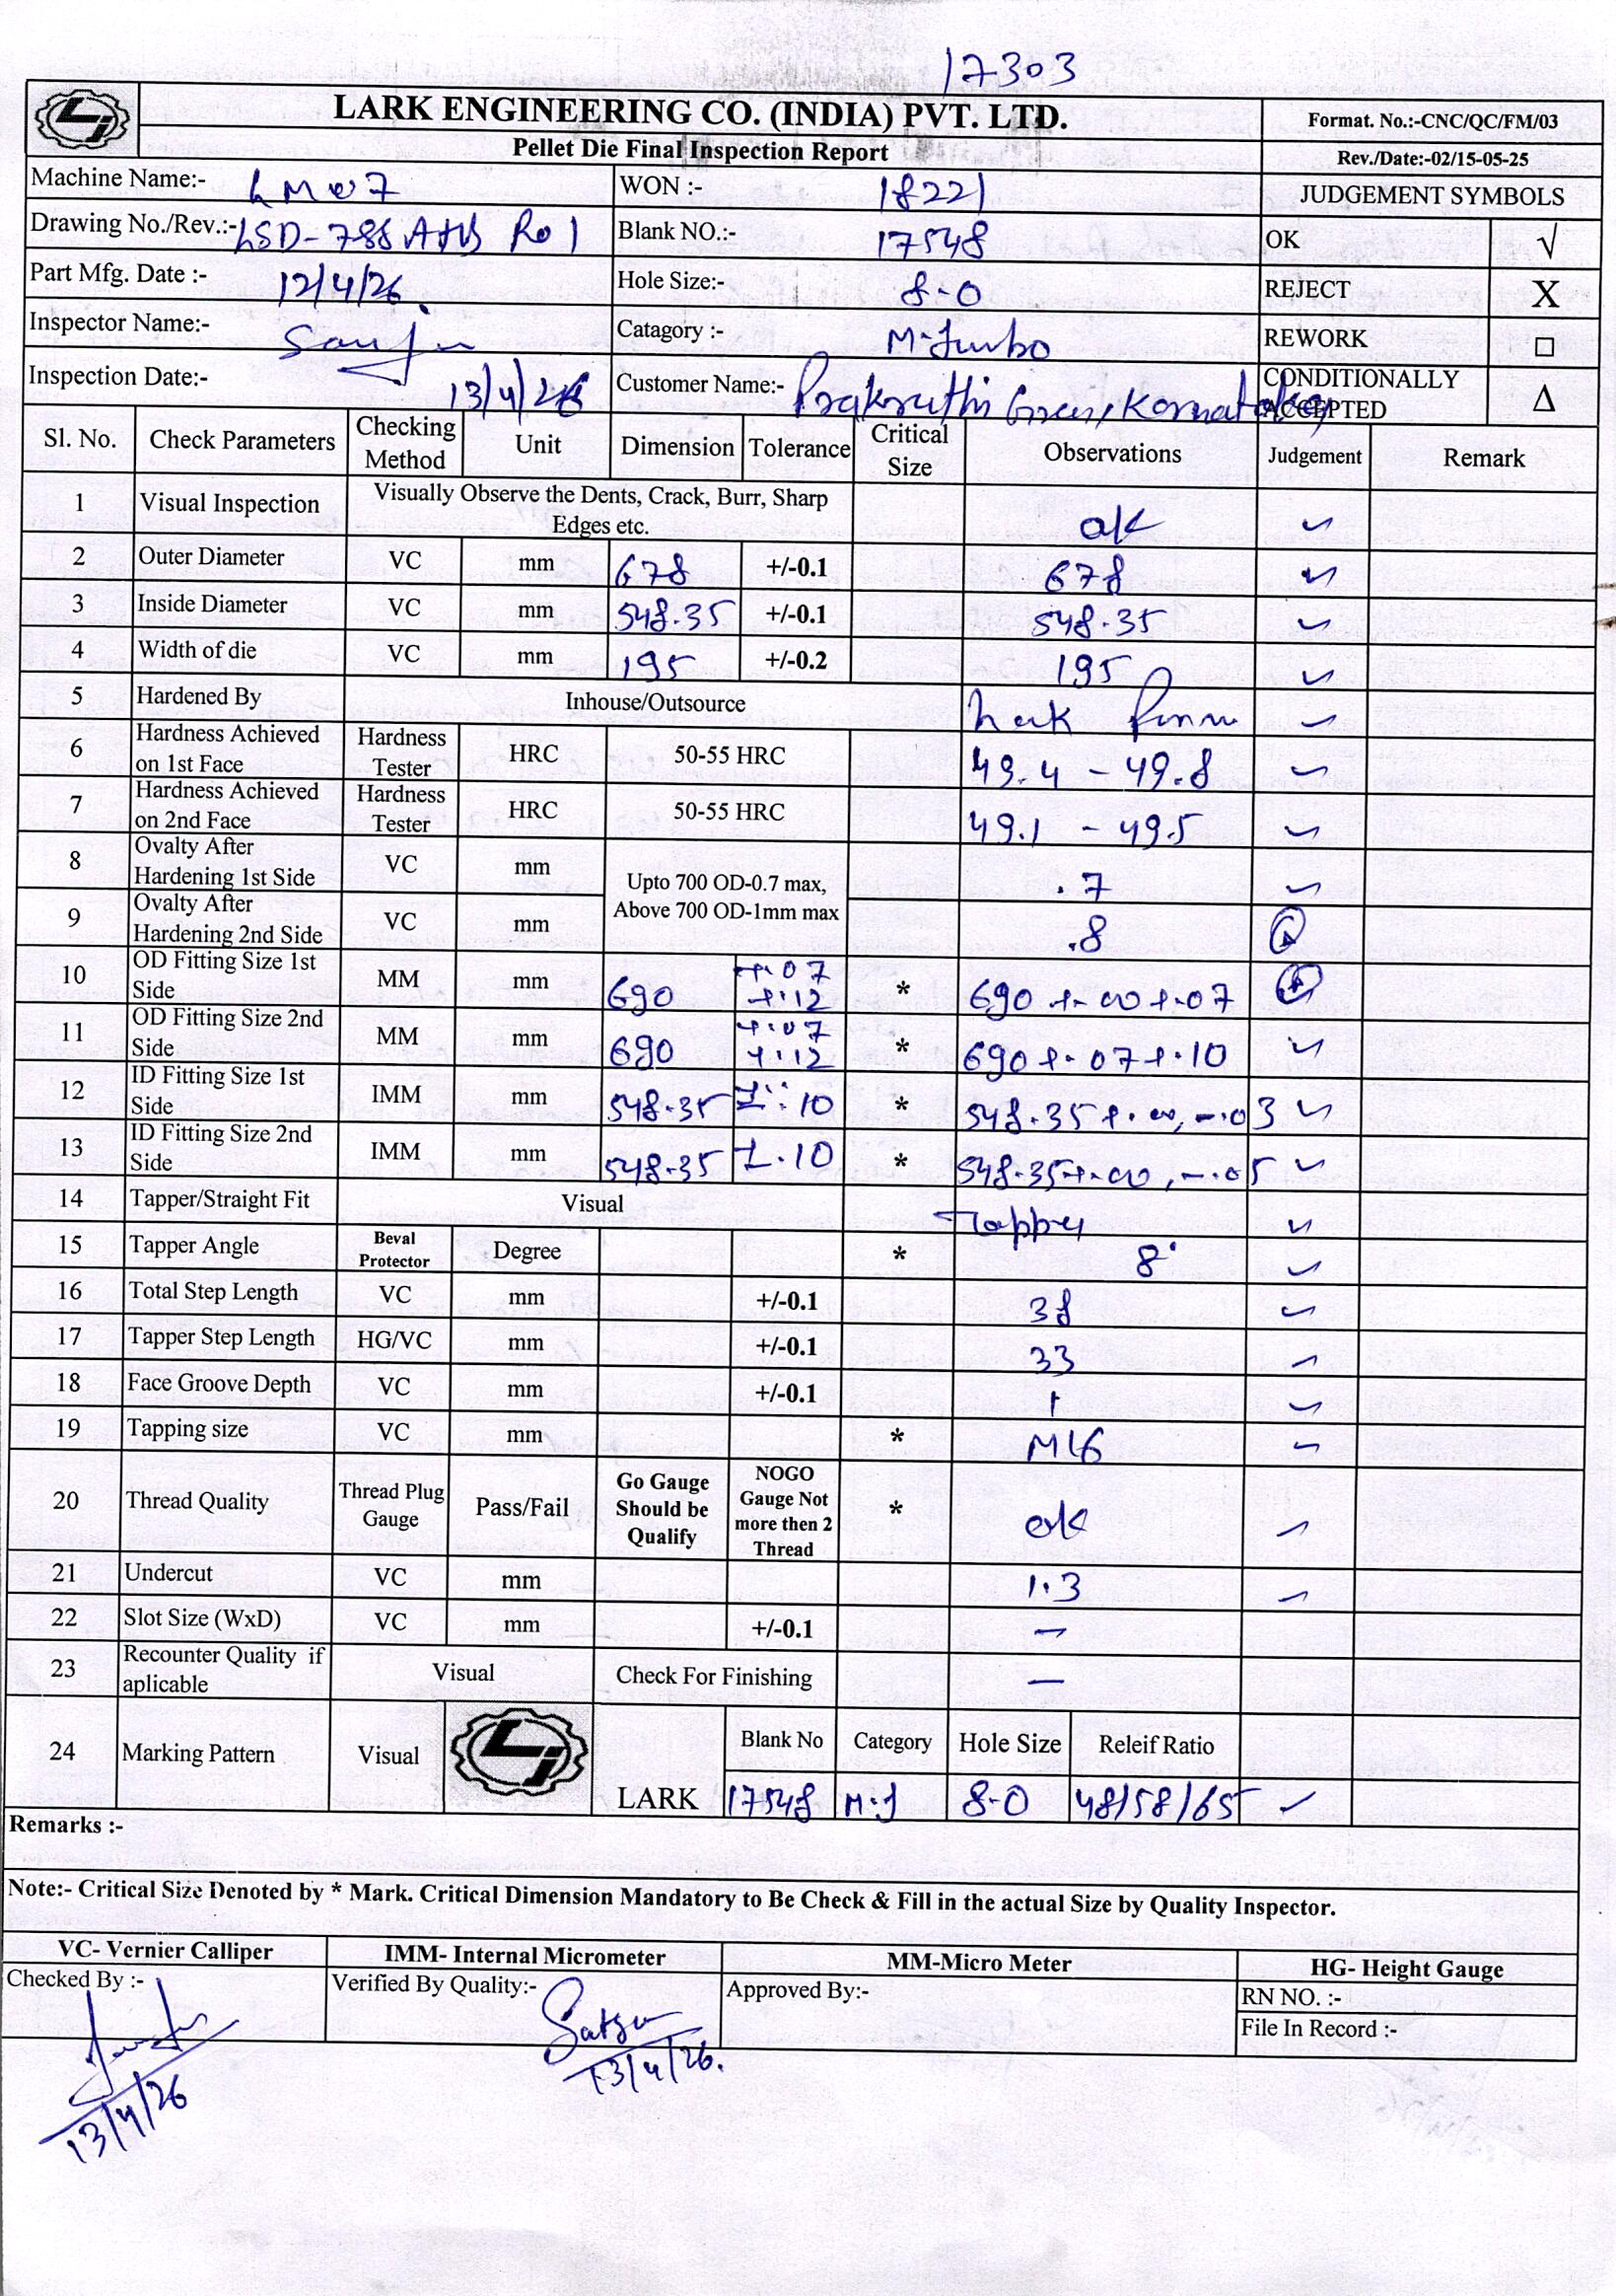 17303
LARK ENGINEERING CO. (INDIA) PVT. LTD.
Format. No.:-CNC/QC/FM/03
Pellet Die Final Inspection Report
Rev./Date:-02/15-05-25
Machine Name:- LM07 WON :- 18221 JUDGEMENT SYMBOLS
Drawing No./Rev.:- LSD-788 A+B R01 Blank NO.:- 17548 OK √
Part Mfg. Date :- 12/4/26 Hole Size:- 8-0 REJECT X
Inspector Name:- Catagory :- M-Turbo REWORK □
Inspection Date:- 13/4/26 Customer Name:- Prakruthi Green, Karnataka CONDITIONALLY ACCEPTED Δ
Sl. No. Check Parameters Checking Method Unit Dimension Tolerance Critical Size Observations Judgement Remark
1 Visual Inspection Visually Observe the Dents, Crack, Burr, Sharp Edges etc. ok ✓
2 Outer Diameter VC mm 678 +/-0.1 678 ✓
3 Inside Diameter VC mm 548.35 +/-0.1 548.35 ✓
4 Width of die VC mm 195 +/-0.2 195 ✓
5 Hardened By Inhouse/Outsource ✓
6 Hardness Achieved on 1st Face Hardness Tester HRC 50-55 HRC 49.4 - 49.8 ✓
7 Hardness Achieved on 2nd Face Hardness Tester HRC 50-55 HRC 49.1 - 49.5 ✓
8 Ovalty After Hardening 1st Side VC mm Upto 700 OD-0.7 max, Above 700 OD-1mm max .7 ✓
9 Ovalty After Hardening 2nd Side VC mm .8
10 OD Fitting Size 1st Side MM mm 690 +.07 +.12 * 690 +.00 +.07
11 OD Fitting Size 2nd Side MM mm 690 +.07 +.12 * 690 +.07 +.10 ✓
12 ID Fitting Size 1st Side IMM mm 548.35 ±.10 * 548.35 +.00, -.03 ✓
13 ID Fitting Size 2nd Side IMM mm 548.35 ±.10 * 548.35 +.00, -.05 ✓
14 Tapper/Straight Fit Visual Tapper ✓
15 Tapper Angle Beval Protector Degree * 8° ✓
16 Total Step Length VC mm +/-0.1 38 ✓
17 Tapper Step Length HG/VC mm +/-0.1 33 ✓
18 Face Groove Depth VC mm +/-0.1 1 ✓
19 Tapping size VC mm * M16 ✓
20 Thread Quality Thread Plug Gauge Pass/Fail Go Gauge Should be Qualify NOGO Gauge Not more then 2 Thread * ok ✓
21 Undercut VC mm 1.3 ✓
22 Slot Size (WxD) VC mm +/-0.1 —
23 Recounter Quality if aplicable Visual Check For Finishing —
24 Marking Pattern Visual LARK Blank No Category Hole Size Releif Ratio
17548 M.J 8-0 48/58/65 ✓
Remarks :-
Note:- Critical Size Denoted by * Mark. Critical Dimension Mandatory to Be Check & Fill in the actual Size by Quality Inspector.
VC- Vernier Calliper IMM- Internal Micrometer MM-Micro Meter HG- Height Gauge
Checked By :- Verified By Quality:- Approved By:- RN NO. :-
File In Record :-
13/4/26 13/4/26.